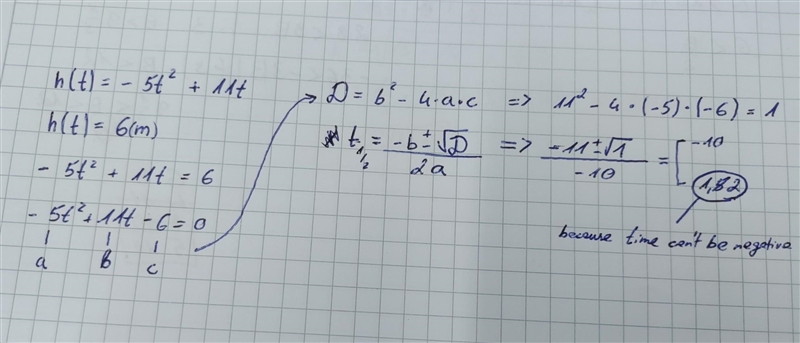 h(t) = - 5t² + 11t
h(t) = 6(m)
- 5t² + 11t = 6
- 5t² + 11t - 6 = 0
a b c
D = b² - 4·a·c => 11² - 4·(-5)·(-6) = 1
t₁/₂ = -b±√D / 2a => -11±√1 / -10 = [ -10
1,2
because time can't be negative